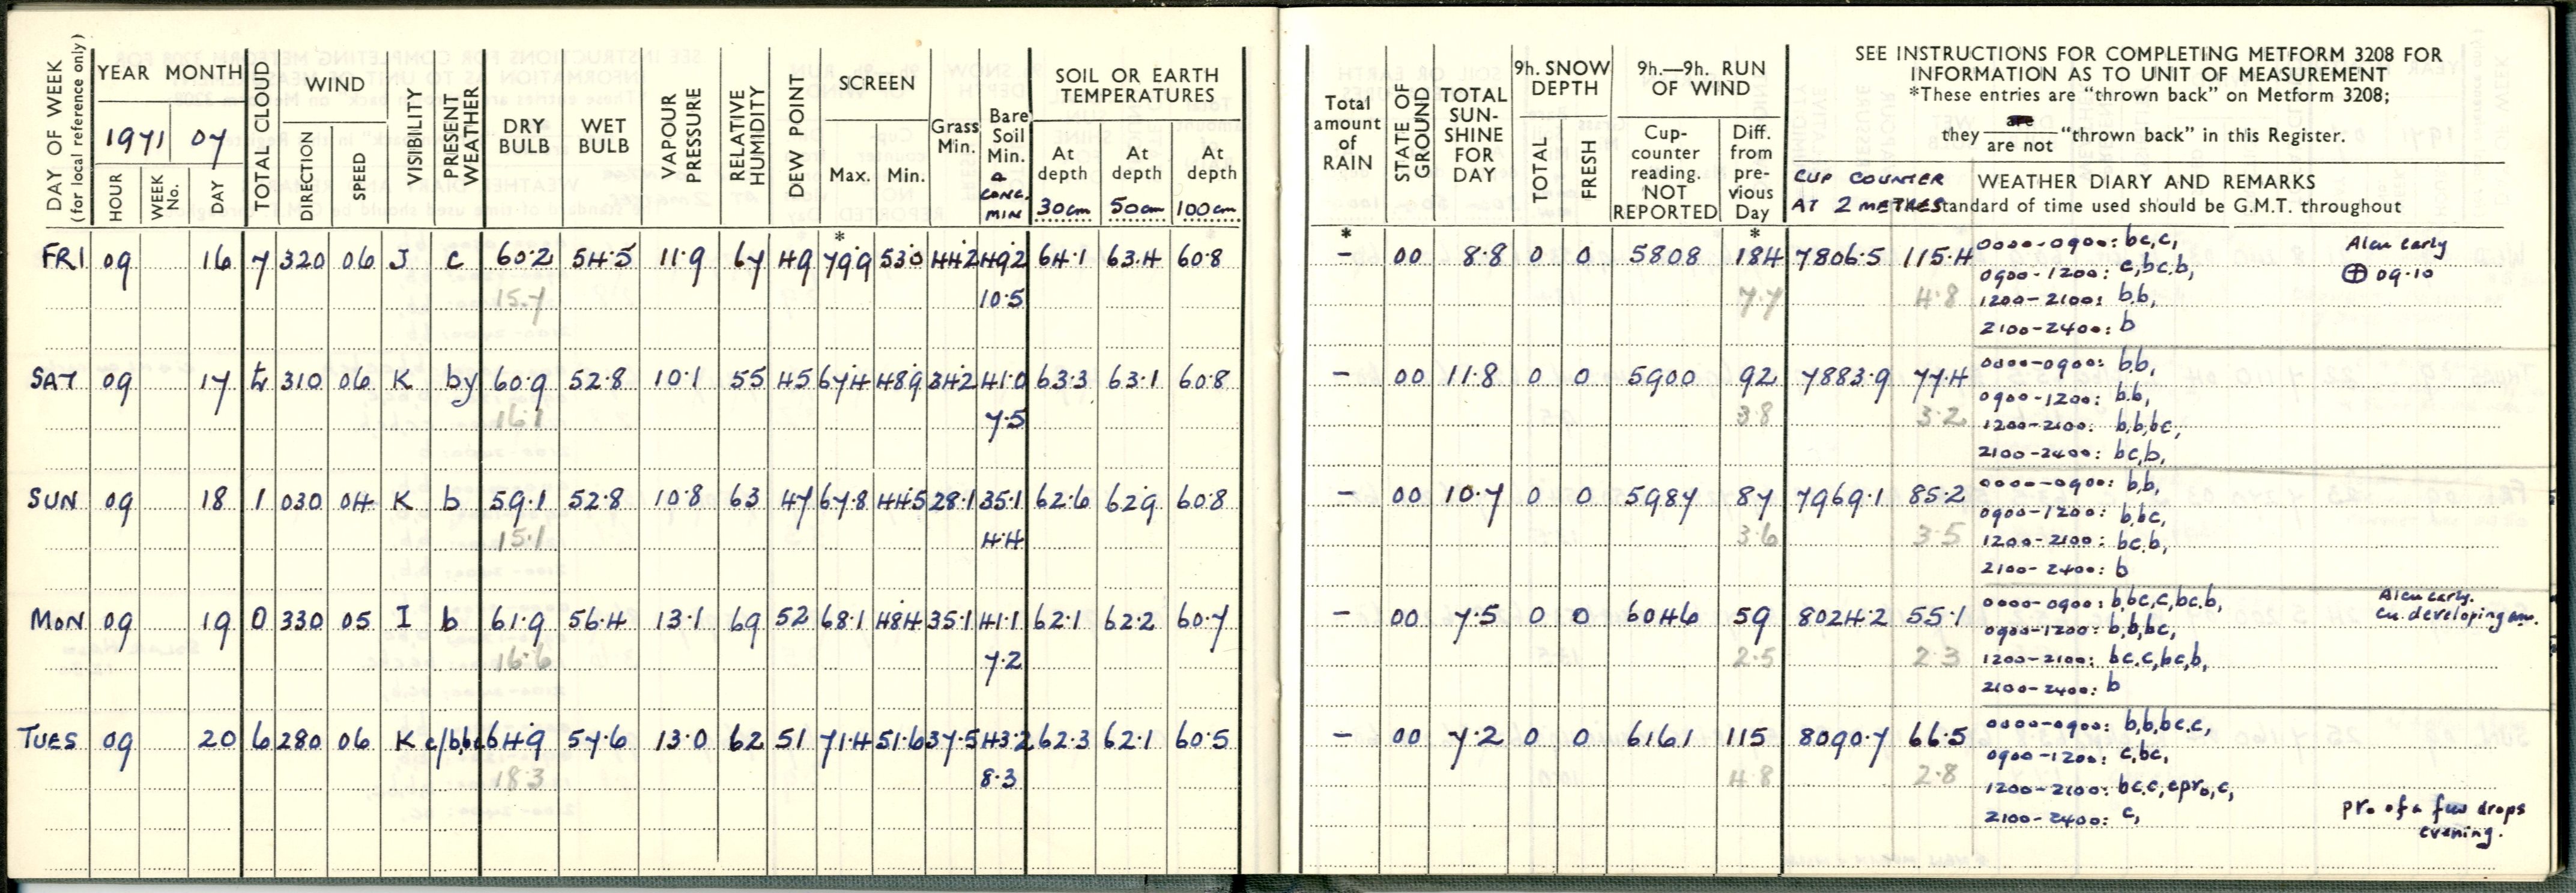 DAY OF WEEK (for local reference only)
YEAR MONTH
1971 07
HOUR
WEEK No.
DAY
TOTAL CLOUD
WIND
DIRECTION
SPEED
VISIBILITY
PRESENT WEATHER
DRY BULB
WET BULB
VAPOUR PRESSURE
RELATIVE HUMIDITY
DEW POINT
SCREEN
Max. Min.
*
Grass Min.
Bare Soil Min.
& CONC. MIN
SOIL OR EARTH TEMPERATURES
At depth 30cm
At depth 50cm
At depth 100cm
FRI 09 16 7 320 06 J c 60·2 54·5 11·9 67 49 79·9 53·0 44·2 49·2 64·1 63·4 60·8
15·7 10·5
SAT 09 17 310 06 K by 60·9 52·8 10·1 55 45 67·4 48·9 34·2 41·0 63·3 63·1 60·8
16·1 7·5
SUN 09 18 1 030 04 K b 59·1 52·8 10·8 63 47 67·8 44·5 28·1 35·1 62·6 62·9 60·8
15·1 4·4
MON 09 19 0 330 05 I b 61·9 56·4 13·1 69 52 68·1 48·4 35·1 41·1 62·1 62·2 60·7
16·6 7·2
TUES 09 20 6 280 06 K c/bbc 64·9 57·6 13·0 62 51 71·4 51·6 37·5 43·2 62·3 62·1 60·5
18·3 8·3
Total amount of RAIN
*
STATE OF GROUND
TOTAL SUN-SHINE FOR DAY
9h. SNOW DEPTH
TOTAL
FRESH
9h.—9h. RUN OF WIND
Cup-counter reading. NOT REPORTED
Diff. from pre-vious Day
*
SEE INSTRUCTIONS FOR COMPLETING METFORM 3208 FOR
INFORMATION AS TO UNIT OF MEASUREMENT
*These entries are "thrown back" on Metform 3208;
they are / are not "thrown back" in this Register.
CUP COUNTER
AT 2 METRES
WEATHER DIARY AND REMARKS
Standard of time used should be G.M.T. throughout
- 00 8·8 0 0 5808 184 7806·5 115·4 0000-0900: bc,c, Alcu early
0900-1200: c,bc,b, ⊕ 09·10
7·7 4·8 1200-2100: b,b,
2100-2400: b
- 00 11·8 0 0 5900 92 7883·9 77·4 0000-0900: b,b,
0900-1200: b,b,
3·8 3·2 1200-2100: b,b,bc,
2100-2400: bc,b,
- 00 10·7 0 0 5987 87 7969·1 85·2 0000-0900: b,b,
0900-1200: b,bc,
3·6 3·5 1200-2100: bc,b,
2100-2400: b
- 00 7·5 0 0 6046 59 8024·2 55·1 0000-0900: b,bc,c,bc,b, Alcu early.
0900-1200: b,b,bc, Cu. developing am.
2·5 2·3 1200-2100: bc,c,bc,b,
2100-2400: b
- 00 7·2 0 0 6161 115 8090·7 66·5 0000-0900: b,b,bc,c,
0900-1200: c,bc,
4·8 2·8 1200-2100: bc,c,cpro,c,
2100-2400: c, pro of a few drops
evening.